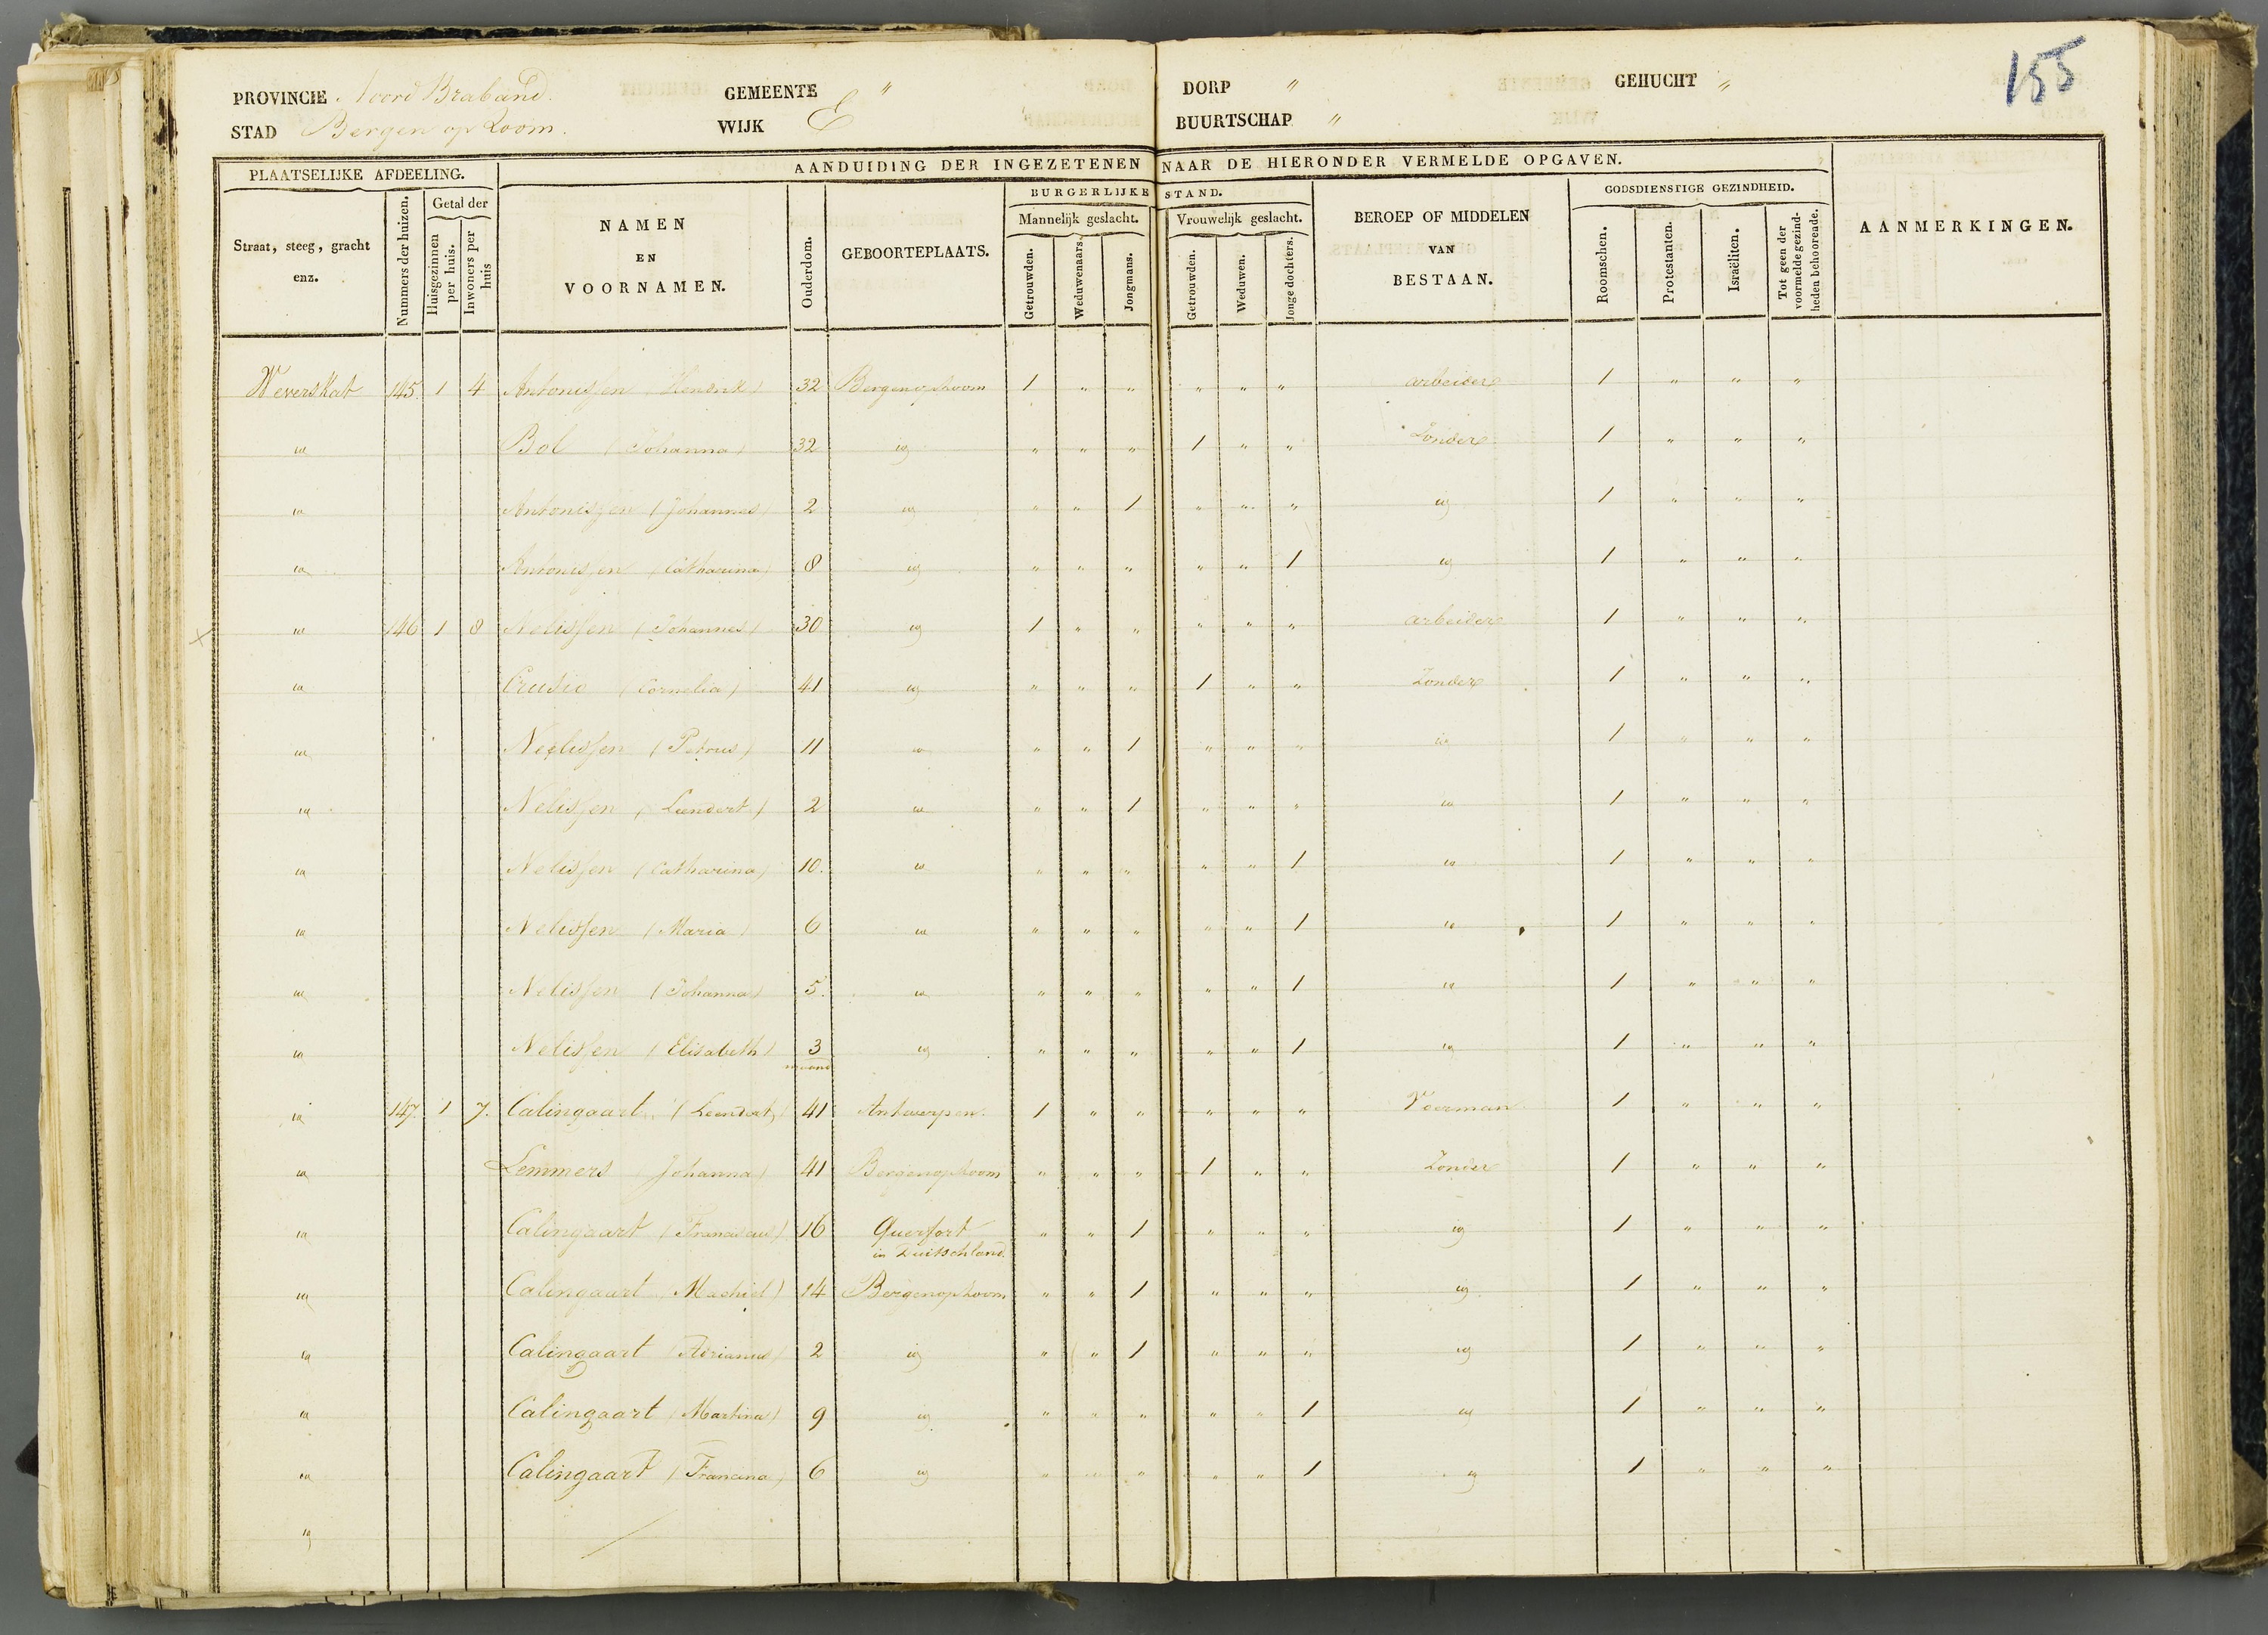 155
PROVINCIE Noord Braband. GEMEENTE " DORP " GEHUCHT "
STAD Bergen op Zoom. WIJK E BUURTSCHAP "
AANDUIDING DER INGEZETENEN NAAR DE HIERONDER VERMELDE OPGAVEN.
PLAATSELIJKE AFDEELING.
BURGERLIJKE STAND.
GODSDIENSTIGE GEZINDHEID.
Straat, steeg, gracht enz.
Nummers der huizen.
Getal der
Huisgezinnen per huis.
Inwoners per huis
NAMEN
EN
VOORNAMEN.
Ouderdom.
GEBOORTEPLAATS.
Mannelijk geslacht.
Getrouwden.
Weduwenaars.
Jongmans.
Vrouwelijk geslacht.
Getrouwden.
Weduwen.
Jonge dochters.
BEROEP OF MIDDELEN
VAN
BESTAAN.
Roomschen.
Protestanten.
Israëliten.
Tot geen der voormelde gezindheden behoorende.
AANMERKINGEN.
Weverskat 145. 1 4 Antonissen (Hendrik) 32 Bergenopzoom 1 " " " " " arbeider 1 " " "
id Bol (Johanna) 32 id " " " 1 " " Zonder 1 " " "
id Antonissen (Johannes) 2 id " " 1 " " " id 1 " " "
id Antonissen (Catharina) 8 id " " " " " 1 id 1 " " "
id 146 1 8 Nelissen (Johannes) 30 id 1 " " " " " arbeider 1 " " "
id Crusio (Cornelia) 41 id " " " 1 " " Zonder 1 " " "
id Neelissen (Petrus) 11 id " " 1 " " " id 1 " " "
id Nelissen (Leendert) 2 id " " 1 " " " id 1 " " "
id Nelissen (Catharina) 10. id " " " " " 1 id 1 " " "
id Nelissen (Maria) 6 id " " " " " 1 id 1 " " "
id Nelissen (Johanna) 5. id " " " " " 1 id 1 " " "
id Nelissen (Elisabeth) 3 maand id " " " " " 1 id 1 " " "
id 147. 1 7. Calingaart (Leendert) 41 Antwerpen. 1 " " " " " Voerman 1 " " "
id Lemmers (Johanna) 41 Bergenopzoom " " " 1 " " Zonder 1 " " "
id Calingaart (Franciscus) 16 Querfort in Duitschland. " " 1 " " " id 1 " " "
id Calingaart (Machiel) 14 Bergenopzoom " " 1 " " " id 1 " " "
id Calingaart (Adrianus) 2 id " " 1 " " " id 1 " " "
id Calingaart (Martina) 9 id " " " " " 1 id 1 " " "
id Calingaart (Francina) 6 id " " " " " 1 id 1 " " "
id